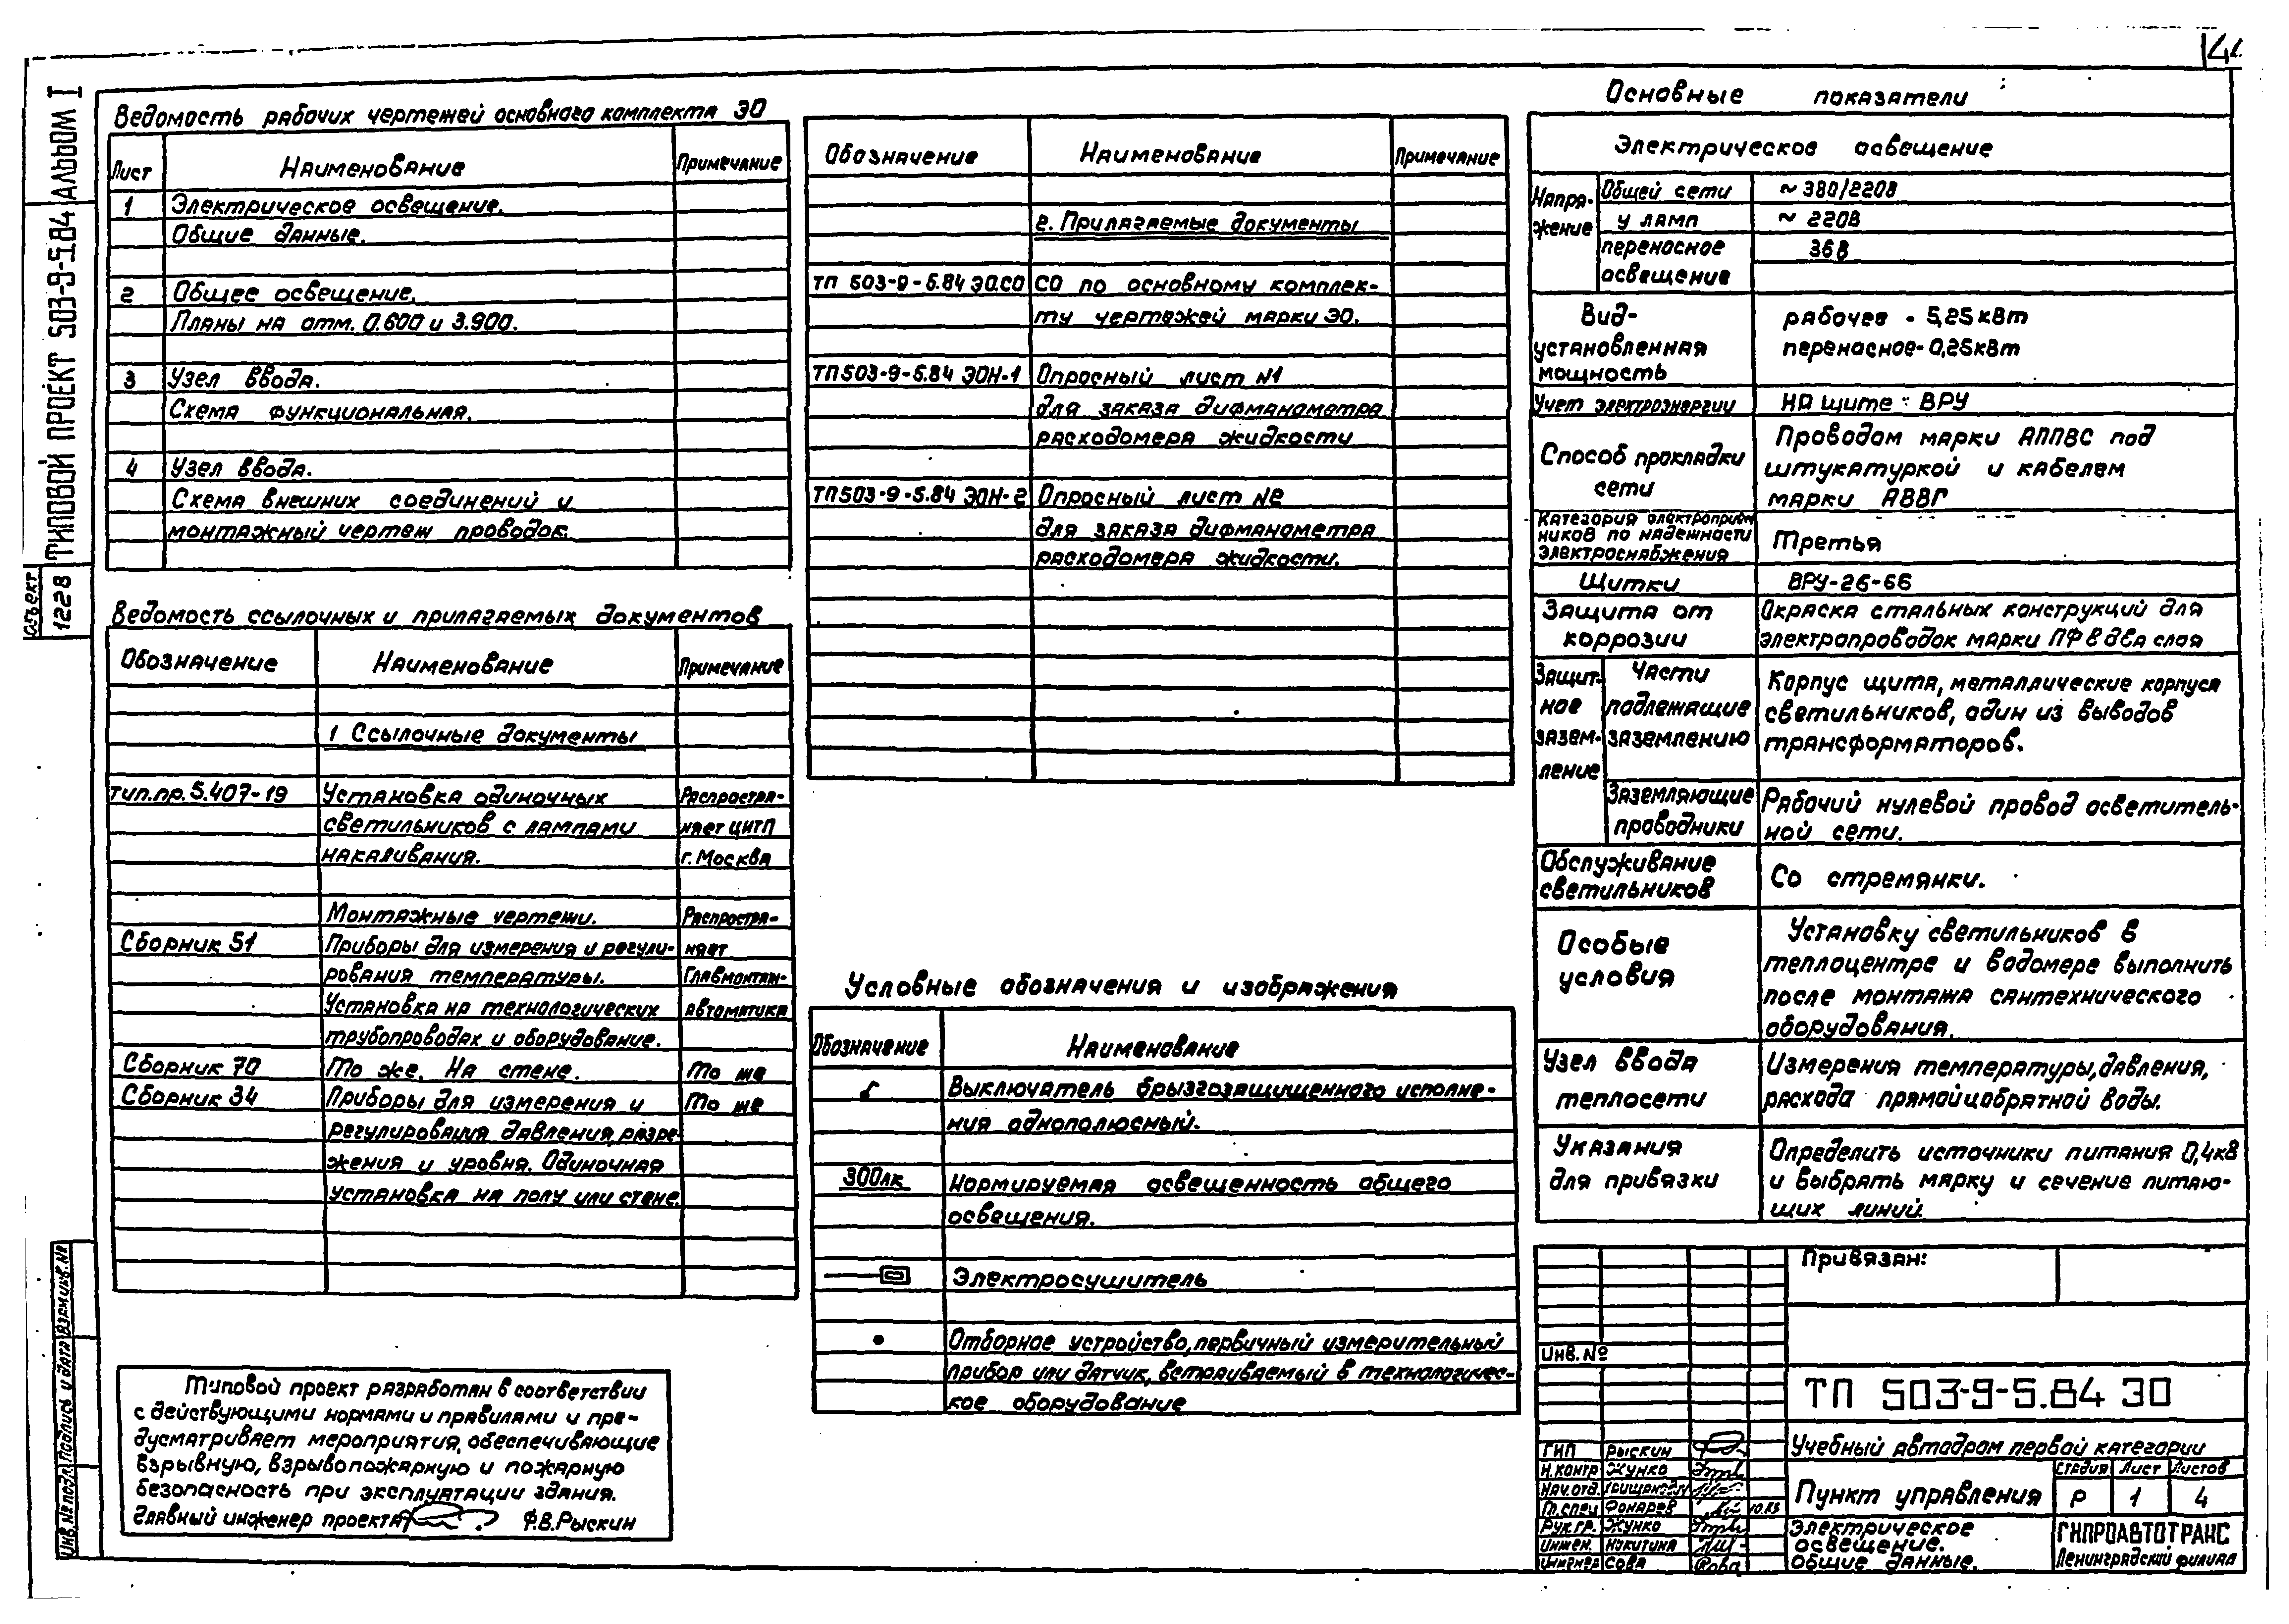 44
ТИПОВОЙ ПРОЕКТ 503-9-5.84 АЛЬБОМ I
Объект 1228
Ведомость рабочих чертежей основного комплекта ЭО
Лист Наименование Примечание
1 Электрическое освещение.
Общие данные.
2 Общее освещение.
Планы на отм. 0.600 и 3.900.
3 Узел ввода.
Схема функциональная.
4 Узел ввода.
Схема внешних соединений и
монтажный чертеж проводок.
Ведомость ссылочных и прилагаемых документов
Обозначение Наименование Примечание
1 Ссылочные документы
тип.пр. 5.407-19 Установка одиночных Распростра-
светильников с лампами няет ЦИТП
накаливания. г. Москва
Монтажные чертежи. Распростра-
Сборник 51 Приборы для измерения и регули- няет
рования температуры. Главмонтаж-
Установка на технологических автоматика
трубопроводах и оборудование.
Сборник 70 То же. На стене. То же
Сборник 34 Приборы для измерения и То же
регулирования давления, разре-
жения и уровня. Одиночная
установка на полу или стене.
Типовой проект разработан в соответствии
с действующими нормами и правилами и пре-
дусматривает мероприятия, обеспечивающие
взрывную, взрывопожарную и пожарную
безопасность при эксплуатации здания.
Главный инженер проекта Ф.В. Рыскин
Обозначение Наименование Примечание
2. Прилагаемые документы
ТП 503-9-5.84 ЭО.СО СО по основному комплек-
ту чертежей марки ЭО.
ТП 503-9-5.84 ЭОН-1 Опросный лист №1
для заказа дифманометра
расходомера жидкости
ТП 503-9-5.84 ЭОН-2 Опросный лист №2
для заказа дифманометра
расходомера жидкости.
Условные обозначения и изображения
Обозначение Наименование
Выключатель брызгозащищенного исполне-
ния однополюсный.
300лк Нормируемая освещенность общего
освещения.
Электросушитель
Отборное устройство, первичный измерительный
прибор или датчик, встраиваемый в технологичес-
кое оборудование
Основные показатели
Электрическое освещение
Напря-жение Общей сети ~ 380/220В
у ламп ~ 220В
переносное 36В
освещение
Вид- рабочее - 5,25 кВт
установленная переносное - 0,25 кВт
мощность
Учет электроэнергии на щите ВРУ
Способ прокладки сети Проводом марки АППВС под
штукатуркой и кабелем
марки АВВГ
Категория электроприем
ников по надежности Третья
электроснабжения
Щитки ВРУ-26-66
Защита от Окраска стальных конструкций для
коррозии электропроводок марки ПФ в два слоя
Защит-ное зазем-ление Части подлежащие заземлению
Корпус щита, металлические корпуса
светильников, один из выводов
трансформаторов.
Заземляющие Рабочий нулевой провод осветитель-
проводники ной сети.
Обслуживание
светильников Со стремянки.
Особые условия Установку светильников в
теплоцентре и водомере выполнить
после монтажа сантехнического
оборудования.
Узел ввода Измерения температуры, давления,
теплосети расхода прямой и обратной воды.
Указания Определить источники питания 0,4кВ
для привязки и выбрать марку и сечение питаю-
щих линий.
Привязан:
Инв. №
ТП 503-9-5.84 ЭО
Учебный автодром первой категории
ГИП Рыскин
Н.контр Жунко
Нач.отд.
Гл.спец Фонарев
Рук.гр. Жунко
Инжен. Никитина
Инженер Сова
Пункт управления
Стадия Лист Листов
Р 1 4
Электрическое
освещение.
Общие данные.
ГИПРОАВТОТРАНС
Ленинградский филиал
Инв.№ подл. Подпись и дата Взам.инв.№